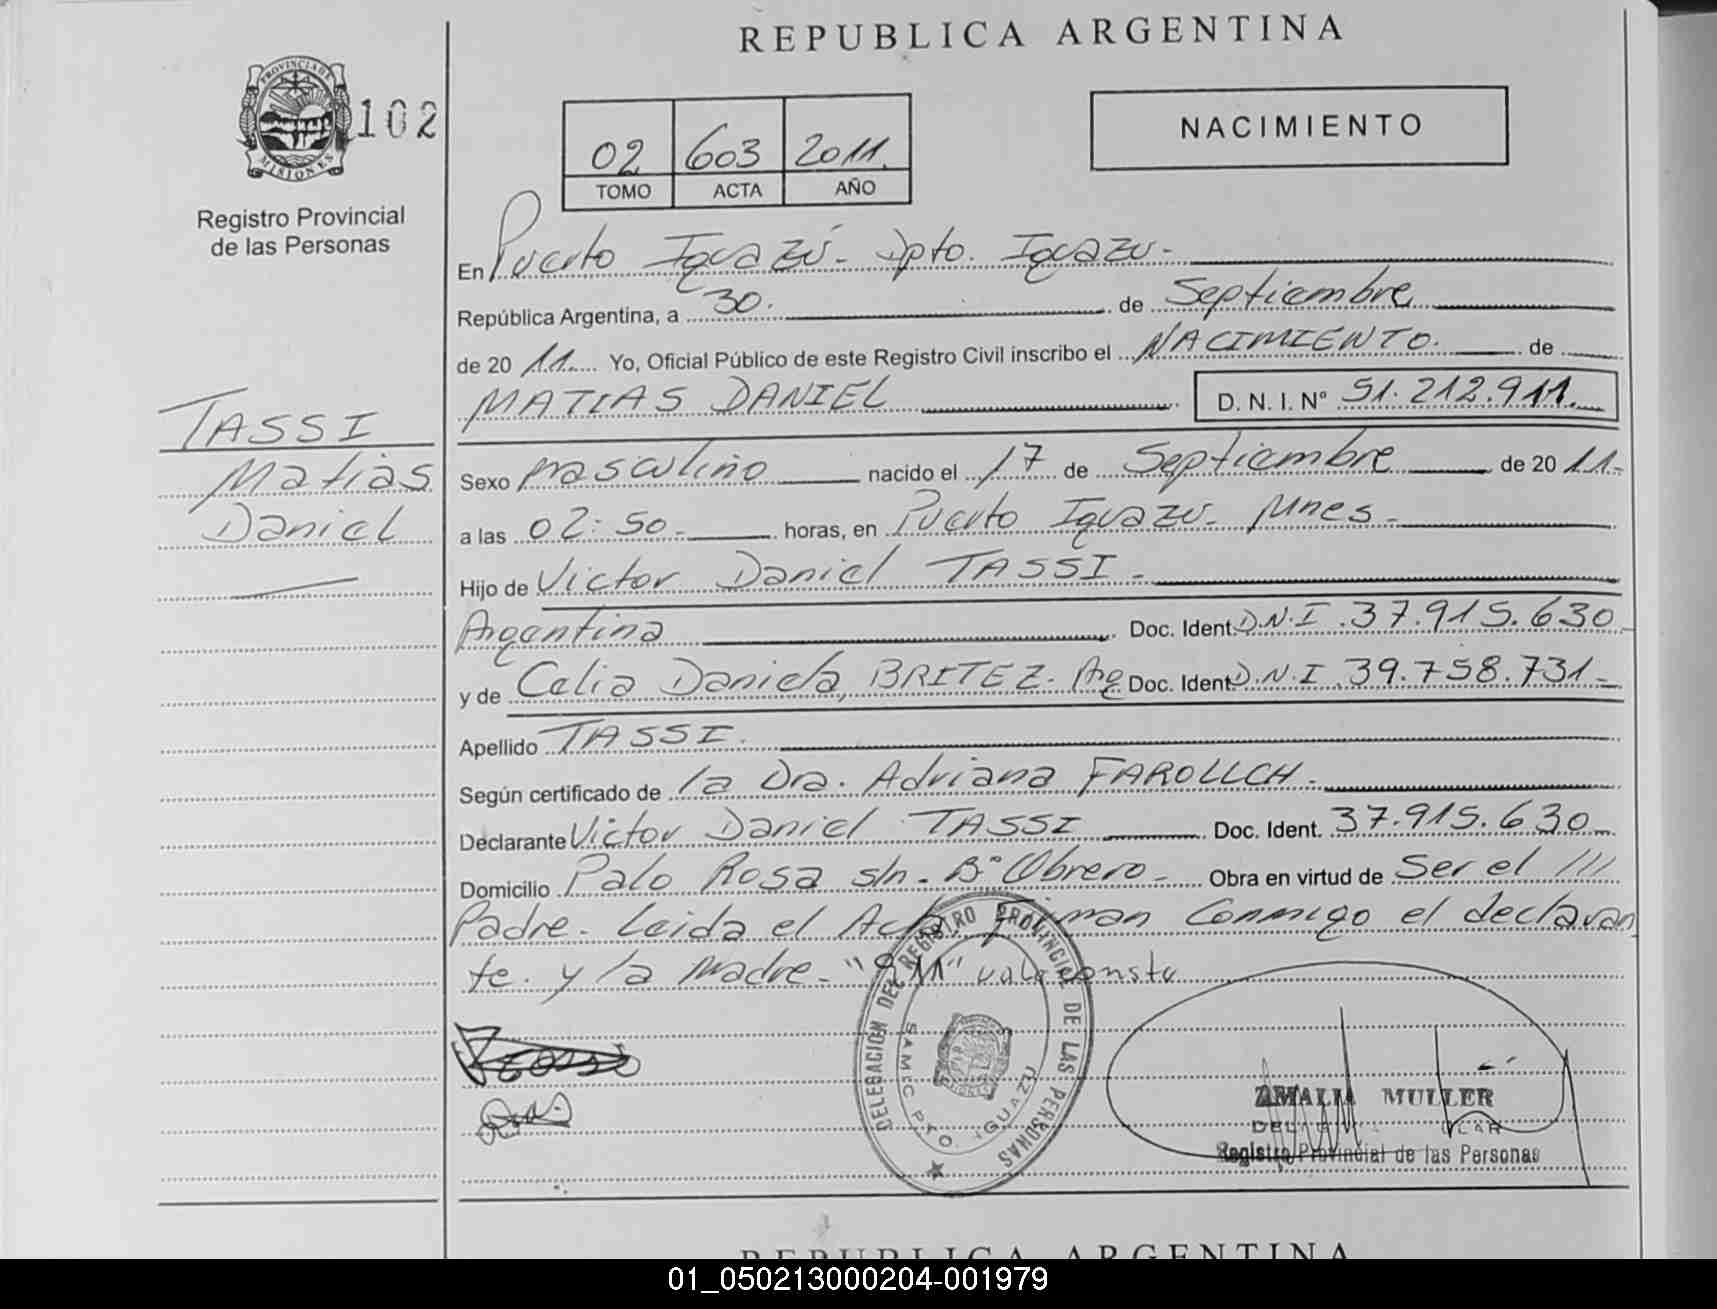 REPUBLICA ARGENTINA
PROVINCIA DE
MISIONES
102
Registro Provincial
de las Personas
02 603 2011.
TOMO ACTA AÑO
NACIMIENTO
En Puerto Iguazú - Dpto. Iguazu -
República Argentina, a 30. de Septiembre
de 20 11 Yo, Oficial Público de este Registro Civil inscribo el NACIMIENTO. de
MATIAS DANIEL D. N. I. Nº 51.212.911.
TASSI
Matias
Daniel
Sexo masculino nacido el 17 de Septiembre de 20 11-
a las 02:50 - horas, en Puerto Iguazu - Mnes -
Hijo de Victor Daniel TASSI -
Argentina Doc. Ident. D.N.I. 37.915.630-
y de Celia Daniela BRITEZ - Arg Doc. Ident. D.N.I. 39.758.731-
Apellido TASSI.
Según certificado de la Dra. Adriana
Declarante Victor Daniel TASSI Doc. Ident. 37.915.630
Domicilio Palo Rosa s/n. Bº Obrero - Obra en virtud de Ser el ///
Padre. Leida el Acta, Firman Conmigo el declaran
te. y la Madre - "911" vale consta
DELEGACION DEL REGISTRO PROVINCIAL DE LAS PERSONAS
SAMIC PTO. IGUAZU
AMALIA MULLER
Registro Provincial de las Personas
REPUBLICA ARGENTINA
01_050213000204-001979